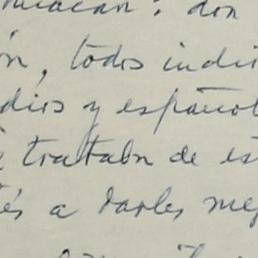 don
ón, todos indi
dios y español
e trataba de es
és a darles mej